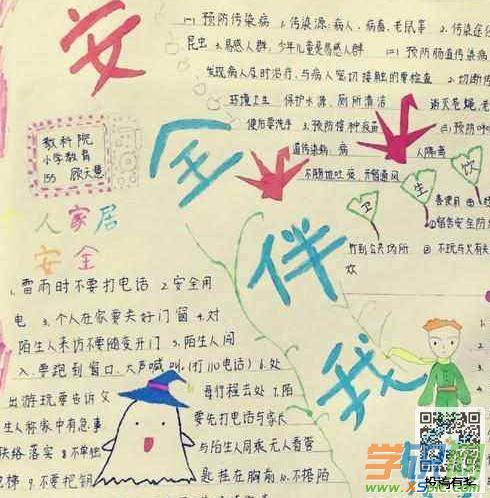 安全伴我
(一)预防传染病 1.传染源:病人、病畜、老鼠等 2.传染途径
昆虫 3.易感人群:少年儿童是易感人群 (二)预防肠道传染病
发现病人及时治疗,与病人密切接触的要检查 2.切断传
环境卫生 保护水源、厕所清洁 消灭苍蝇、老
便后要洗手 3.预防接种疫苗 (三)预防呼
道传染病、病 人隔离
不随地吐痰、开窗通风
教科院
小学教育
155 顾天慧
卫生饮
竹到公共场所
欢
人家居
安全
1.雷雨时不要打电话 2.安全用
电 3.个人在家要关好门窗 4.对
陌生人来访不要随变开门 5.陌生人闯
入.要跑到窗口.大声喊叫.(打110电话) 6.处
出游玩要告诉父 母行程去处 7.陌
生人称家中有急事 要先打电话与家长
联络落实 8.不单独 与陌生人同乘无人看管
电梯 9.不要把钥 匙挂在胸前 10.不搭陌
学科网
www.xspic.com
投稿有奖